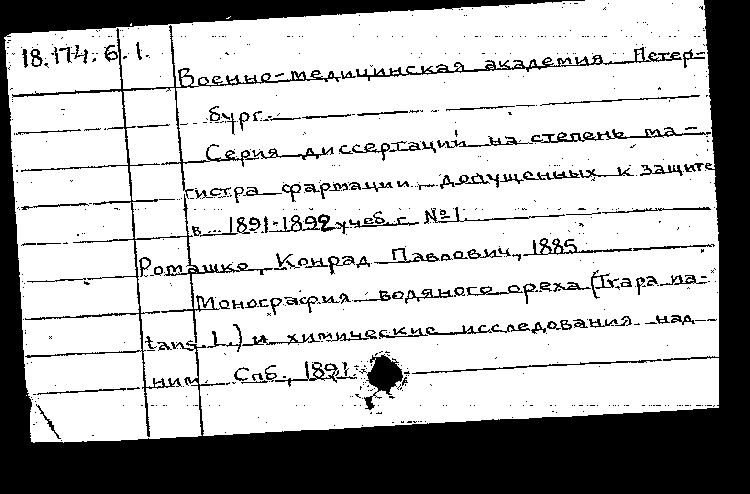 18.174.6.1.
Военно-медицинская академия. Петер-
бург.
Серия диссертаций на степень ма-
гистра фармации, допущенных к защите
в 1891-1892 учеб. г. №1.
Ромашко, Конрад Павлович, 1885
Монография водяного ореха (Trapa na-
tans. l.) и химические исследования над
ним. Спб., 1891.